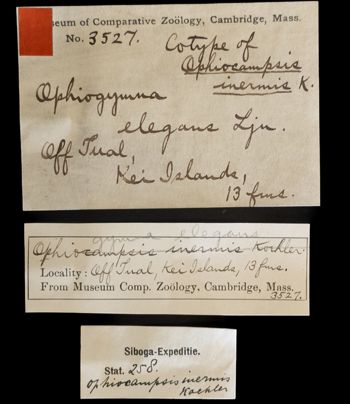 Museum of Comparative Zoölogy, Cambridge, Mass.
No. 3527.
Cotype of
Ophiocampsis
inermis K.
Ophiogymna
elegans Ljn.
Off Tual,
Kei Islands,
13 fms.
gymna elegans
Ophiocampsis inermis Koehler
Locality: Off Tual, Kei Islands, 13 fms.
From Museum Comp. Zoölogy, Cambridge, Mass.
3527.
Siboga-Expeditie.
Stat. 258.
Ophiocampsis inermis
Koehler